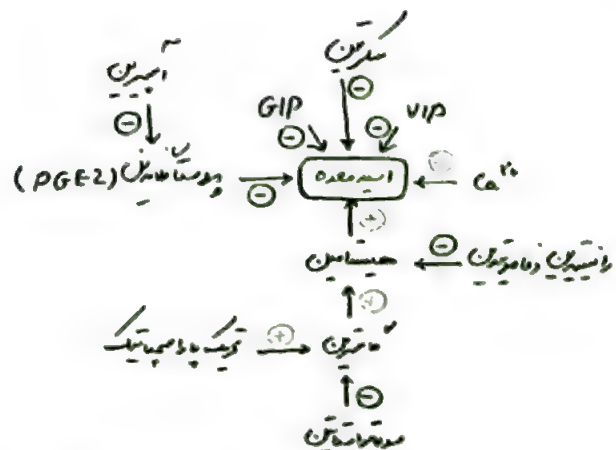 سکرتین
آسپرین
GIP
VIP
پروستاگلاندین (PGE2)
اسید معده
Ca²⁺
هیستامین
رانیتیدین و فاموتیدین
تحریک پاراسمپاتیک
گاسترین
سوماتواستاتین